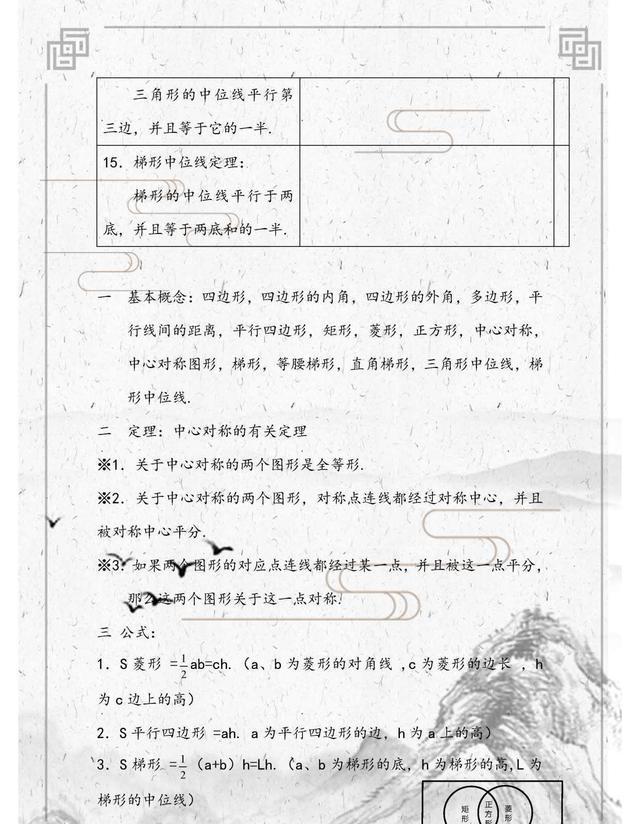 三角形的中位线平行第
三边，并且等于它的一半.
15．梯形中位线定理：
梯形的中位线平行于两
底，并且等于两底和的一半.
一 基本概念：四边形，四边形的内角，四边形的外角，多边形，平
行线间的距离，平行四边形，矩形，菱形，正方形，中心对称，
中心对称图形，梯形，等腰梯形，直角梯形，三角形中位线，梯
形中位线.
二 定理：中心对称的有关定理
※1．关于中心对称的两个图形是全等形.
※2．关于中心对称的两个图形，对称点连线都经过对称中心，并且
被对称中心平分.
※3．如果两个图形的对应点连线都经过某一点，并且被这一点平分，
那么这两个图形关于这一点对称.
三 公式：
1．S 菱形 =1/2ab=ch.（a、b 为菱形的对角线 ,c 为菱形的边长 ，h
为 c 边上的高）
2．S 平行四边形 =ah. a 为平行四边形的边，h 为 a 上的高）
3．S 梯形 =1/2（a+b）h=Lh.（a、b 为梯形的底，h 为梯形的高,L 为
梯形的中位线）
矩形
正方形
菱形